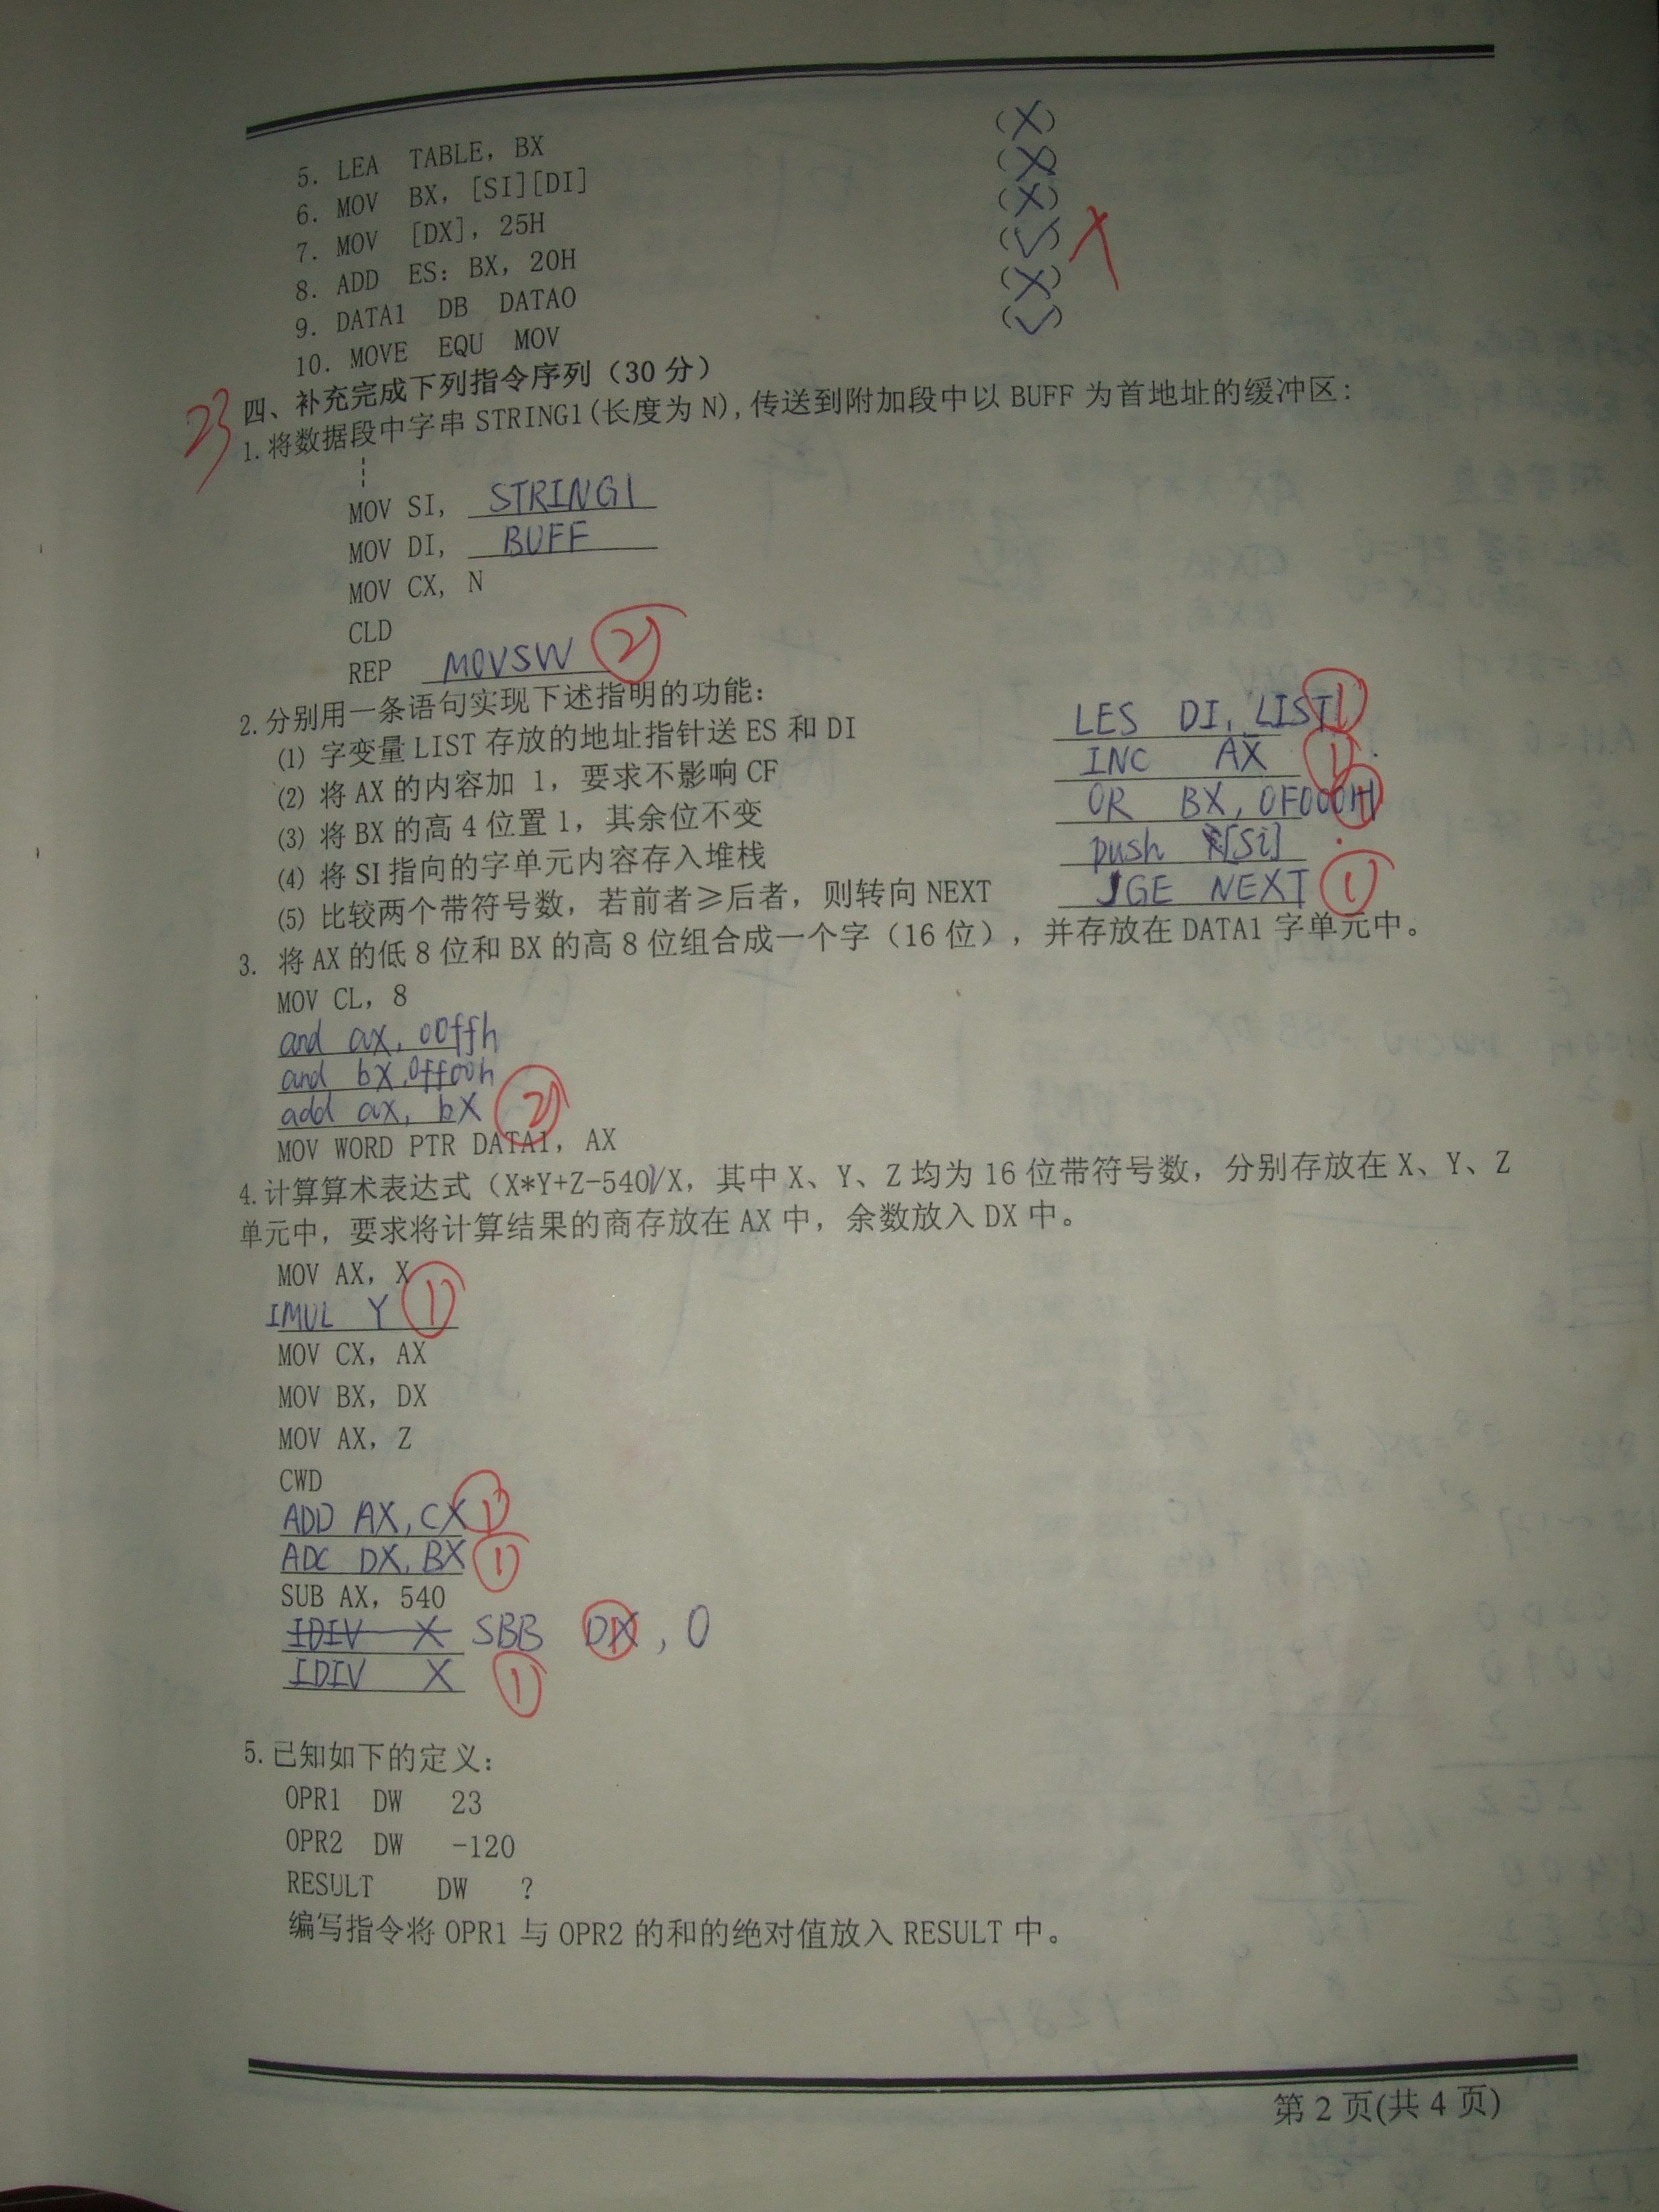 5. LEA TABLE, BX (×)
6. MOV BX, [SI][DI] (×)
7. MOV [DX], 25H (×)
8. ADD ES: BX, 20H (✓) ×
9. DATA1 DB DATA0 (×)
10. MOVE EQU MOV (✓)
23 四、补充完成下列指令序列（30 分）
1.将数据段中字串 STRING1(长度为 N),传送到附加段中以 BUFF 为首地址的缓冲区：
MOV SI, STRING1
MOV DI, BUFF
MOV CX, N
CLD
REP MOVSW ②
2.分别用一条语句实现下述指明的功能：
(1) 字变量 LIST 存放的地址指针送 ES 和 DI LES DI, LIST ①
(2) 将 AX 的内容加 1，要求不影响 CF INC AX ①
(3) 将 BX 的高 4 位置 1，其余位不变 OR BX, 0F000H ①
(4) 将 SI 指向的字单元内容存入堆栈 push [Si]
(5) 比较两个带符号数，若前者≥后者，则转向 NEXT JGE NEXT ①
3. 将 AX 的低 8 位和 BX 的高 8 位组合成一个字（16 位），并存放在 DATA1 字单元中。
MOV CL, 8
and ax, 00ffh
and bx, 0ff00h
add ax, bx ②
MOV WORD PTR DATA1, AX
4.计算算术表达式（X*Y+Z-540)/X，其中 X、Y、Z 均为 16 位带符号数，分别存放在 X、Y、Z
单元中，要求将计算结果的商存放在 AX 中，余数放入 DX 中。
MOV AX, X
IMUL Y ①
MOV CX, AX
MOV BX, DX
MOV AX, Z
CWD
ADD AX, CX ①
ADC DX, BX ①
SUB AX, 540
IDIV X SBB DX, 0 ①
IDIV X ①
5.已知如下的定义：
OPR1 DW 23
OPR2 DW -120
RESULT DW ?
编写指令将 OPR1 与 OPR2 的和的绝对值放入 RESULT 中。
第 2 页(共 4 页)